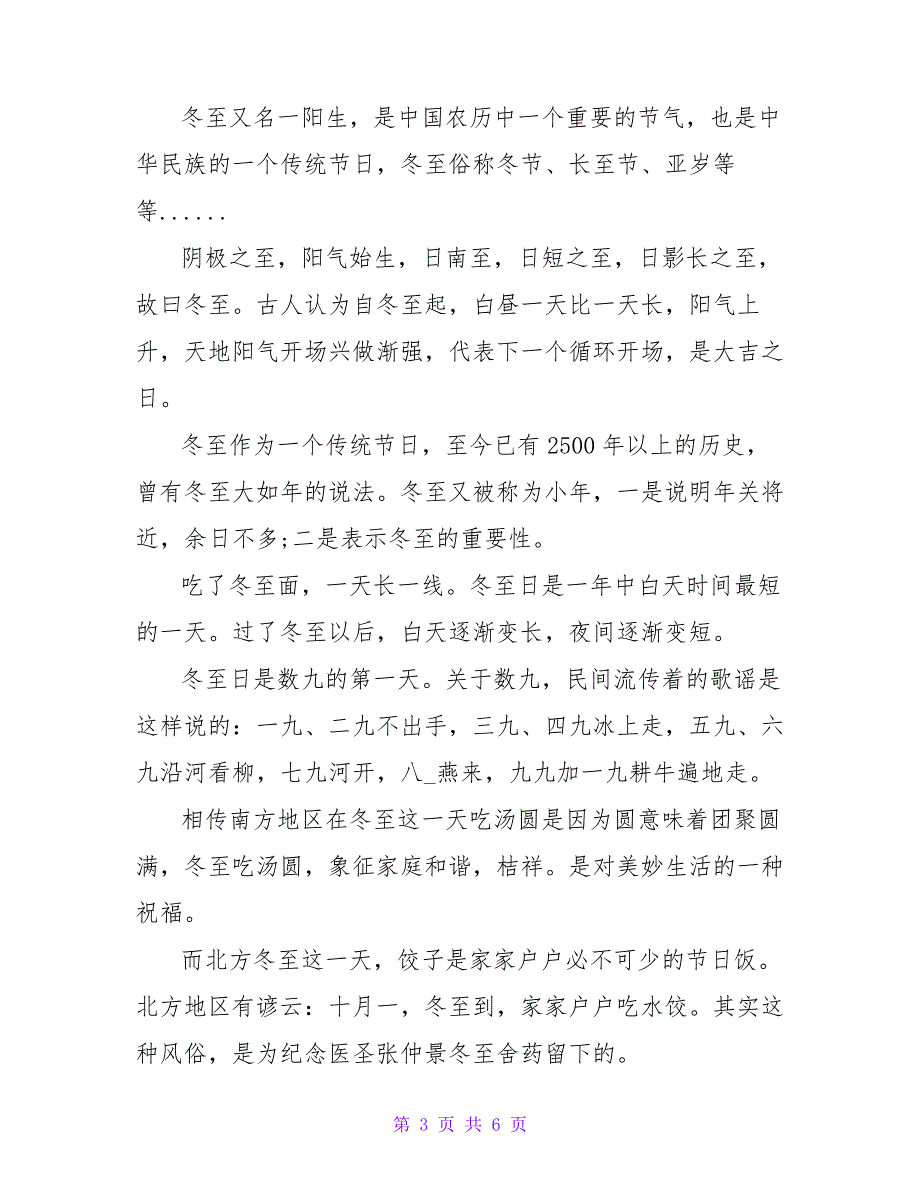 冬至又名一阳生，是中国农历中一个重要的节气，也是中
华民族的一个传统节日，冬至俗称冬节、长至节、亚岁等
等......
阴极之至，阳气始生，日南至，日短之至，日影长之至，
故曰冬至。古人认为自冬至起，白昼一天比一天长，阳气上
升，天地阳气开场兴做渐强，代表下一个循环开场，是大吉之
日。
冬至作为一个传统节日，至今已有 2500 年以上的历史，
曾有冬至大如年的说法。冬至又被称为小年，一是说明年关将
近，余日不多;二是表示冬至的重要性。
吃了冬至面，一天长一线。冬至日是一年中白天时间最短
的一天。过了冬至以后，白天逐渐变长，夜间逐渐变短。
冬至日是数九的第一天。关于数九，民间流传着的歌谣是
这样说的：一九、二九不出手，三九、四九冰上走，五九、六
九沿河看柳，七九河开，八_燕来，九九加一九耕牛遍地走。
相传南方地区在冬至这一天吃汤圆是因为圆意味着团聚圆
满，冬至吃汤圆，象征家庭和谐，桔祥。是对美妙生活的一种
祝福。
而北方冬至这一天，饺子是家家户户必不可少的节日饭。
北方地区有谚云：十月一，冬至到，家家户户吃水饺。其实这
种风俗，是为纪念医圣张仲景冬至舍药留下的。
第 3 页 共 6 页